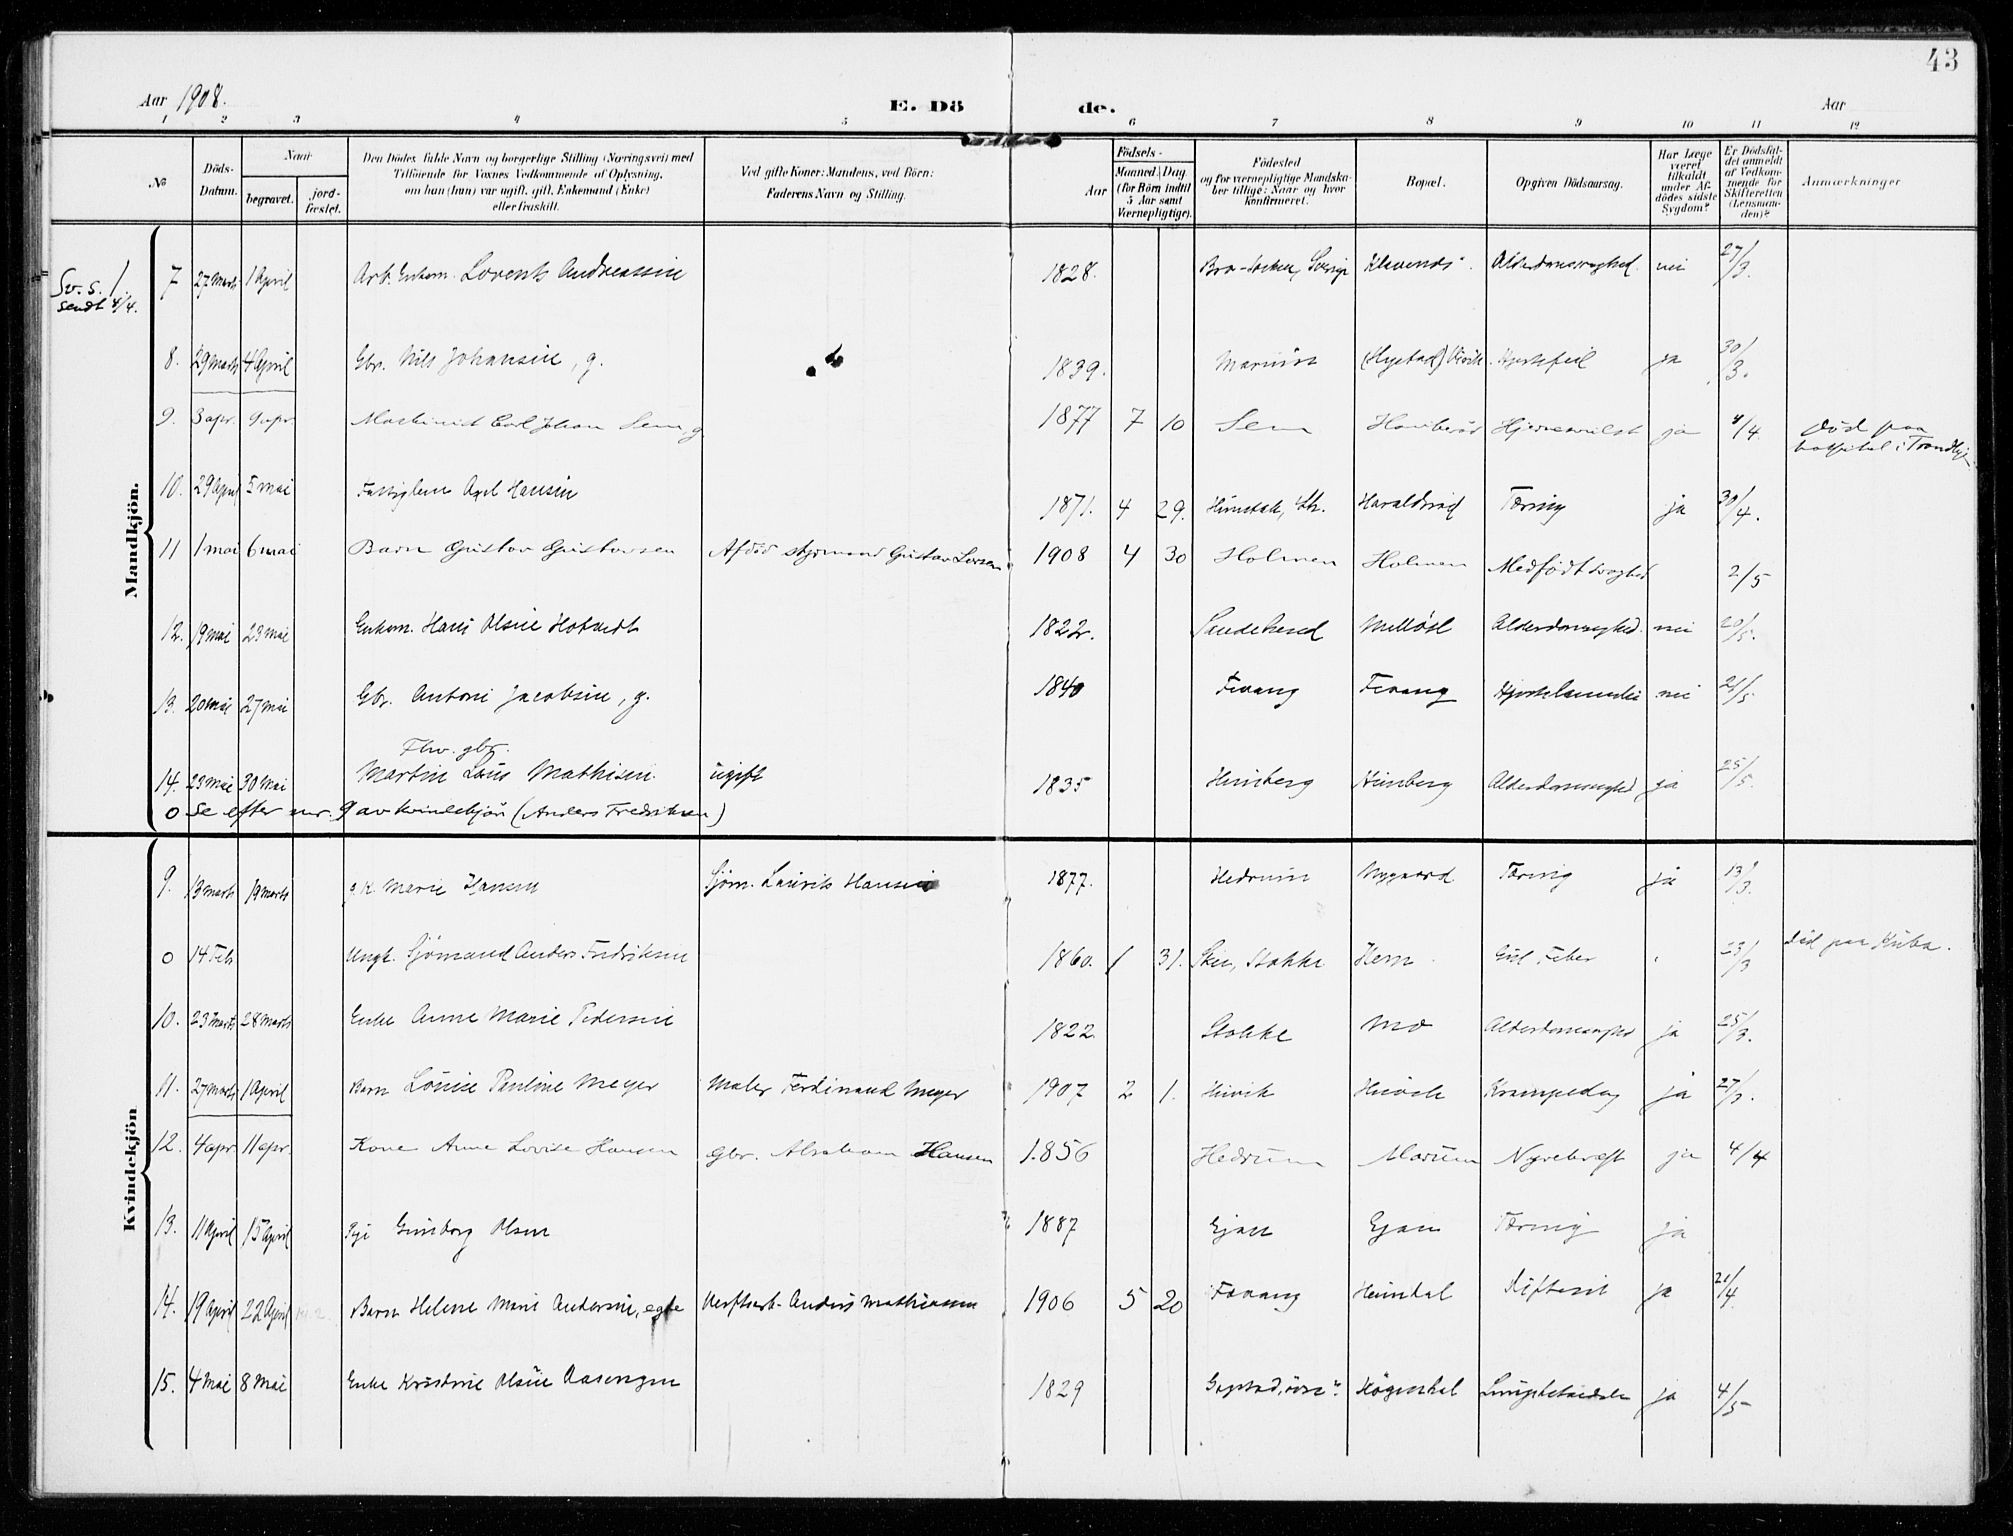 43
Aar 1908. E. Dö de. Aar
1 2 3 4 5 6 7 8 9 10 11 12
No
Döds-Datum.
Naar
begravet.
jord-fæstet.
Den Dödes fulde Navn og borgerlige Stilling (Næringsvei) med
Tilföiende for Voxnes Vedkommende af Oplysning,
om han (hun) var ugift, gift, Enkemand (Enke)
eller fraskilt.
Ved gifte Koner: Mandens, ved Börn:
Faderens Navn og Stilling.
Födsels-
Aar
Maaned. Dag.
(for Börn indtil
5 Aar samt
Værnepligtige).
Födested
og for værnepligtige Mandska-
ber tillige: Naar og hvor
konfirmeret.
Bopæl.
Opgiven Dödsaarsag.
Har Læge
været
tilkaldt
under Af-
dödes sidste
Sygdom?
Er Dödsfal-
det anmeldt
af Vedkom-
mende for
Skifteretten
(Lensman-
den)?
Anmærkninger
Mandkjön.
Sv. s. 1.
sendt 4/4.
7 27 Marts 1 April Arb. Enkem. Lorents Andreassen 1828. Sverige Alderdomssvaghed. nei 27/3.
8. 29 Marts 4 April Gbr. Nils Johansen, g. 1839. Hjertefeil ja 30/3.
9. 3 apr. 9 apr. Maskinist Carl Johan Sem, g 1877 7 10 Sem ja 4/4. Död paa
hospital i
10. 29 April 5 mai Fattiglem Axel Hansen 1871. 4 29. Haraldsrød Tæring ja 30/4.
11 1 mai 6 mai Barn Gustav Gustavsen Afdöd styrmand Gustav 1908 4 30 Holmen Holmen Medfödt svaghed 2/5
12. 19 mai 23 mai Enkem. Hans Olsen Hotvedt 1822. Sandeherred Alderdomssvaghed. nei 20/5.
13. 20 mai 27 mai Gbr. Antoni Jacobsen, g. 1840 Fevang Fevang nei 21/5
Fhv. gbr.
14. 23 mai 30 mai Martin Laus Mathisen. ugift 1835 Himberg Himberg Alderdomssvaghed ja 25/5.
o Se efter nr. 9 av kvindekjön (Anders Fredriksen)
Kvindekjön
9. 13 marts 19 marts g.k. Marie Hansen Sjöm. Laurits Hansen 1877. Hedrum Nygaard Tæring ja 13/3.
o 14 Feb Ungk. Sjömand Anders Fredriksen 1860. 1 31. Stokke Hem Gul Feber 23/3 Död paa Kuba.
10. 23 Marts 28 Marts Enke Anne Marie Pedersen 1822. Stokke Mo Alderdomssvaghed ja 25/3.
11. 27 Marts 1 April Barn Louise Pauline Meyer Maler Ferdinand Meyer 1907 2 1. ja 27/3.
12. 4 apr 11 apr. Kone Anne Lovise Hansen Gbr. Abraham Hansen 1856 Hedrum Marum Nyrekræft ja 4/4
13. 11 April 15 April Pige Gunborg Olsen 1887 Gjein Gjein Tæring ja
14. 19 April 22 April Barn Helene Marie Andersen, egte Verftsarb. Anders Mathiassen 1906 5 20 Fevang Heimdal Difterit ja 21/4.
15. 4 Mai 8 Mai Enke Kristine Olsen Aasengen 1829 ja 4/5